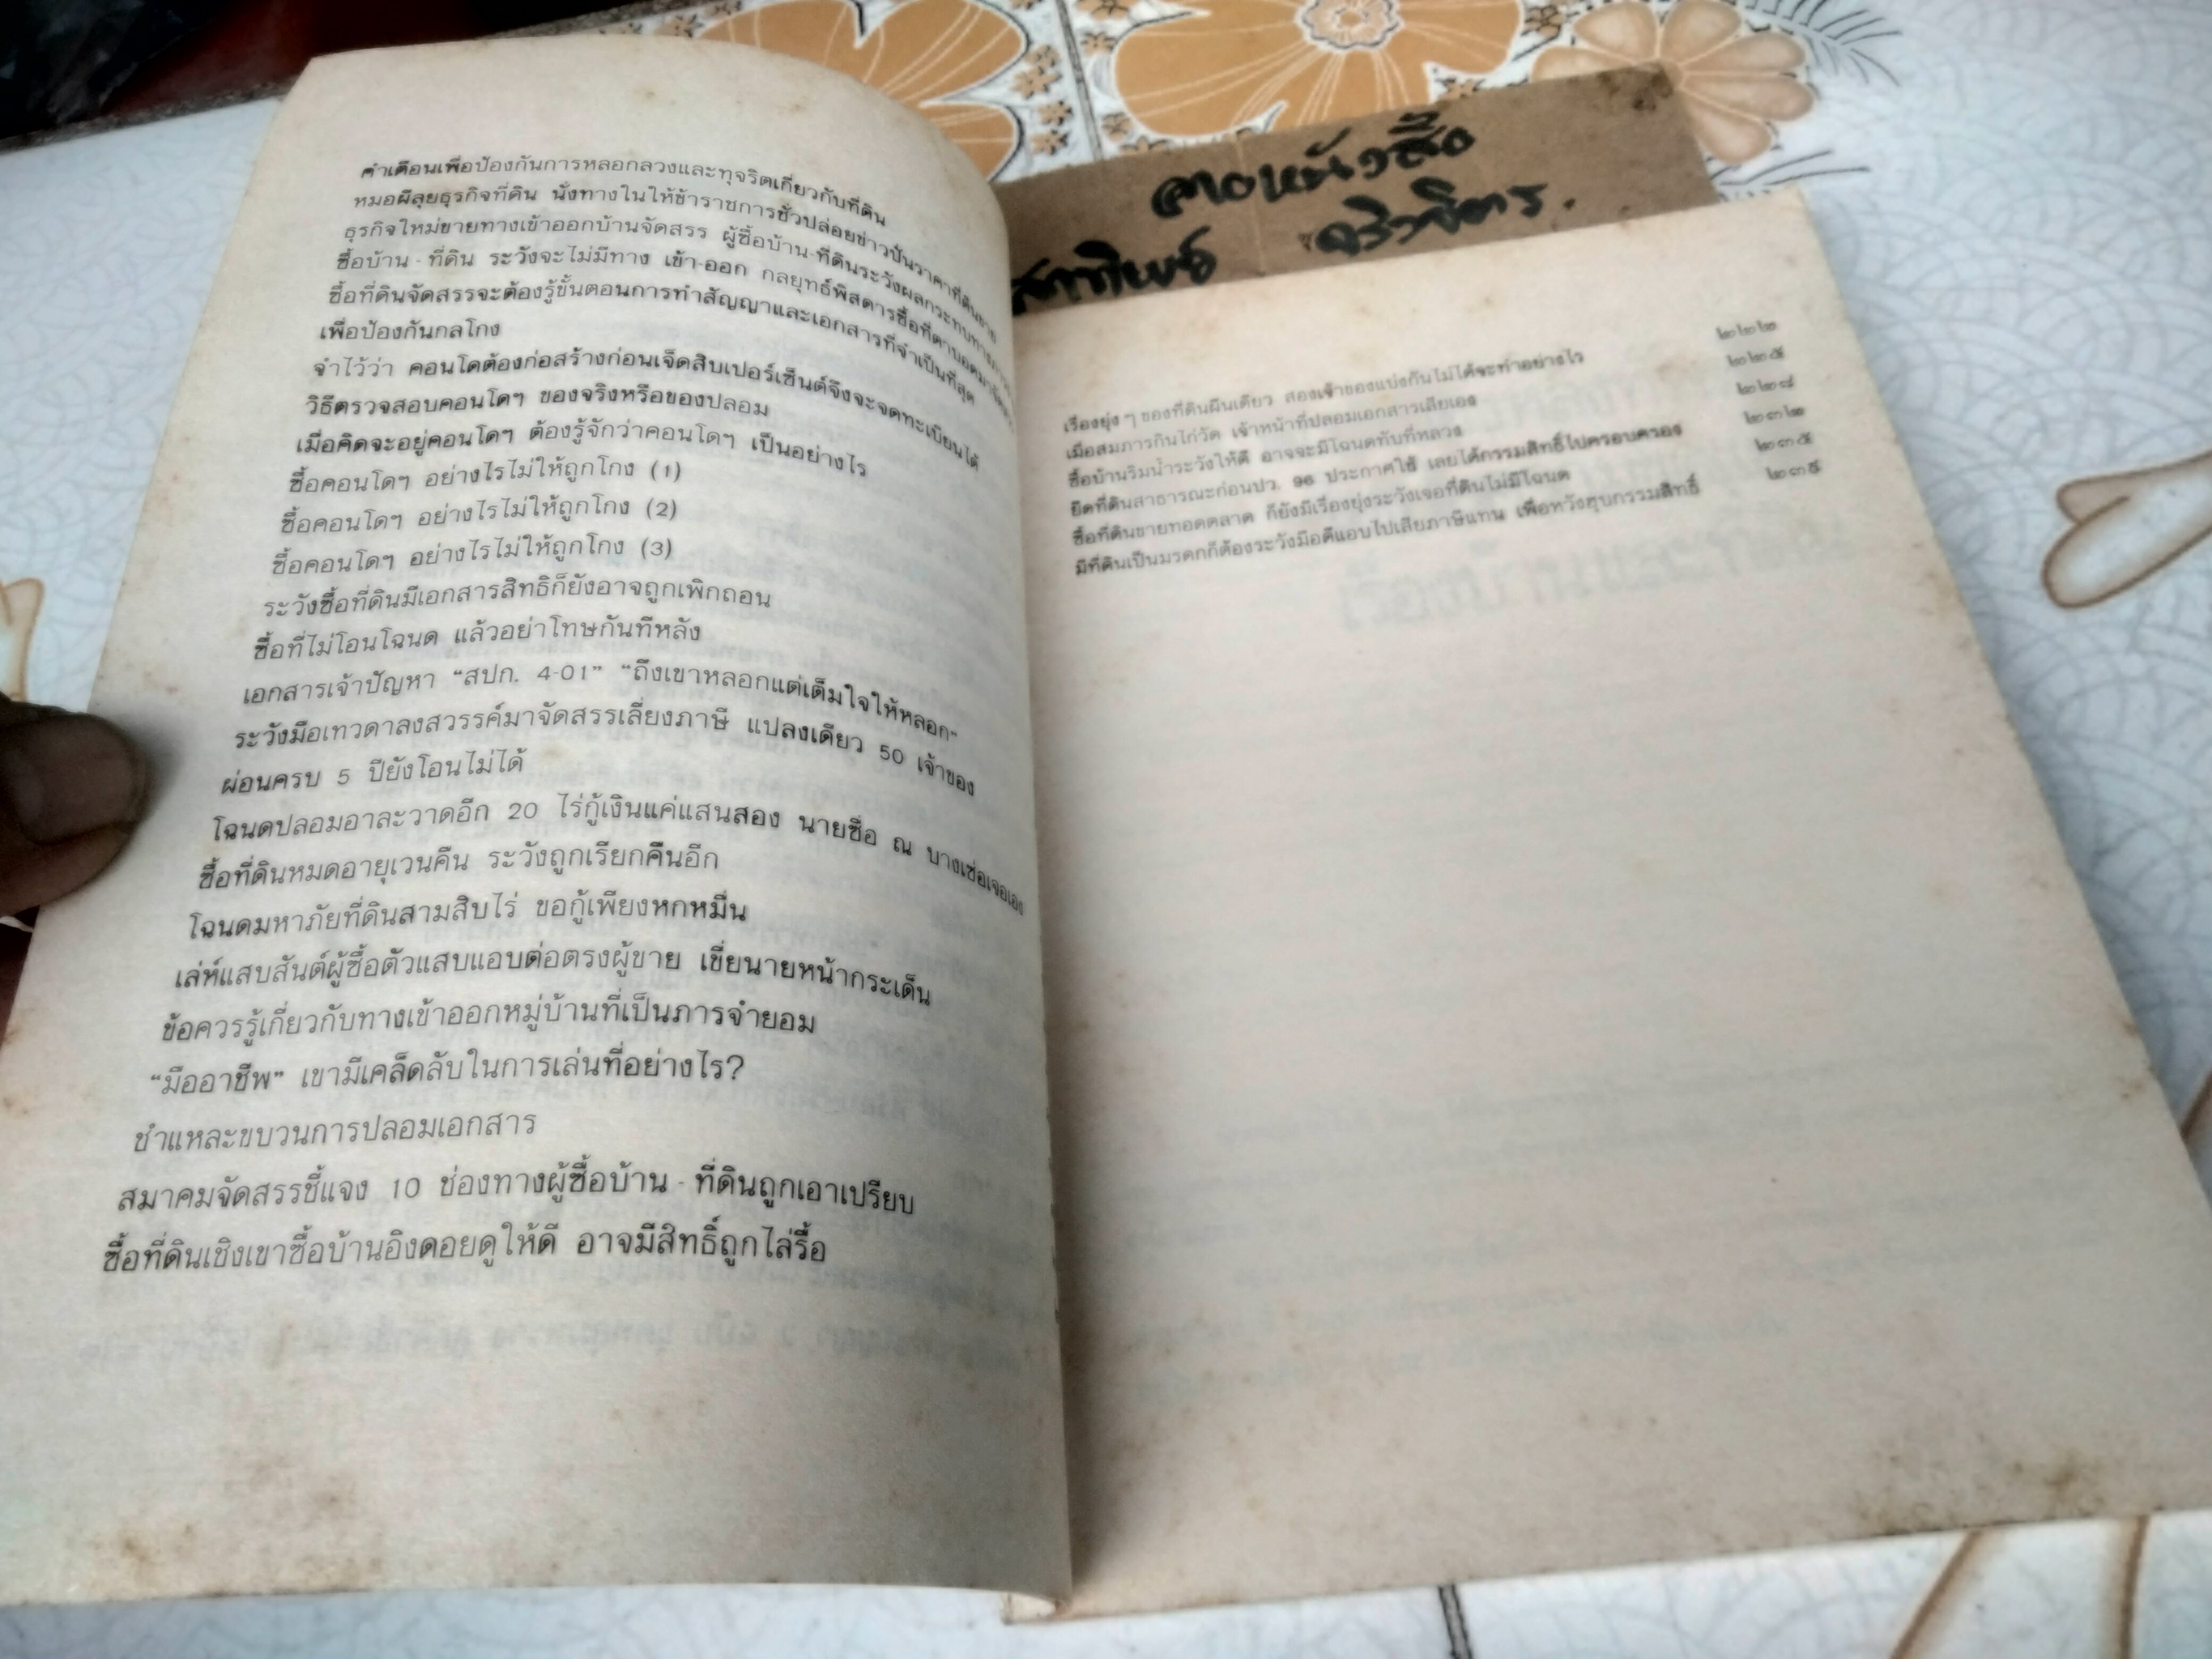 คำเตือนเพื่อป้องกันการหลอกลวงและทุจริตเกี่ยวกับที่ดิน
หมอผีลุยธุรกิจที่ดิน นั่งทางในให้ข้าราชการชั่วปล่อยข่าวปั่นราคาที่ดินขาย
ธุรกิจใหม่ขายทางเข้าออกบ้านจัดสรร ผู้ซื้อบ้าน-ที่ดินระวังผลกระทบทาง
ซื้อบ้าน - ที่ดิน ระวังจะไม่มีทาง เข้า-ออก กลยุทธ์พิสดารซื้อที่ตาบอดมา
ซื้อที่ดินจัดสรรจะต้องรู้ขั้นตอนการทำสัญญาและเอกสารที่จำเป็นที่สุด
เพื่อป้องกันกลโกง
จำไว้ว่า คอนโดต้องก่อสร้างก่อนเจ็ดสิบเปอร์เซ็นต์จึงจะจดทะเบียนได้
วิธีตรวจสอบคอนโดฯ ของจริงหรือของปลอม
เมื่อคิดจะอยู่คอนโดฯ ต้องรู้จักว่าคอนโดฯ เป็นอย่างไร
ซื้อคอนโดฯ อย่างไรไม่ให้ถูกโกง (1)
ซื้อคอนโดฯ อย่างไรไม่ให้ถูกโกง (2)
ซื้อคอนโดฯ อย่างไรไม่ให้ถูกโกง (3)
ระวังซื้อที่ดินมีเอกสารสิทธิก็ยังอาจถูกเพิกถอน
ซื้อที่ไม่โอนโฉนด แล้วอย่าโทษกันทีหลัง
เอกสารเจ้าปัญหา “สปก. 4-01” “ถึงเขาหลอกแต่เต็มใจให้หลอก”
ระวังมือเทวดาลงสวรรค์มาจัดสรรเลี่ยงภาษี แปลงเดียว 50 เจ้าของ
ผ่อนครบ 5 ปียังโอนไม่ได้
โฉนดปลอมอาละวาดอีก 20 ไร่กู้เงินแค่แสนสอง นายชื่อ ณ บางเซ่อเจอเอง
ซื้อที่ดินหมดอายุเวนคืน ระวังถูกเรียกคืนอีก
โฉนดมหาภัยที่ดินสามสิบไร่ ขอกู้เพียงหกหมื่น
เล่ห์แสบสันต์ผู้ซื้อตัวแสบแอบต่อตรงผู้ขาย เขี่ยนายหน้ากระเด็น
ข้อควรรู้เกี่ยวกับทางเข้าออกหมู่บ้านที่เป็นภารจำยอม
“มืออาชีพ” เขามีเคล็ดลับในการเล่นที่อย่างไร?
ชำแหละขบวนการปลอมเอกสาร
สมาคมจัดสรรชี้แจง 10 ช่องทางผู้ซื้อบ้าน - ที่ดินถูกเอาเปรียบ
ซื้อที่ดินเชิงเขาซื้อบ้านอิงดอยดูให้ดี อาจมีสิทธิ์ถูกไล่รื้อ
เรื่องยุ่ง ๆ ของที่ดินผืนเดียว สองเจ้าของแบ่งกันไม่ได้จะทำอย่างไร ๒๒๒
เมื่อสมภารกินไก่วัด เจ้าหน้าที่ปลอมเอกสารเสียเอง ๒๒๕
ซื้อบ้านริมน้ำระวังให้ดี อาจจะมีโฉนดทับที่หลวง ๒๒๘
ยึดที่ดินสาธารณะก่อนปว. 96 ประกาศใช้ เลยได้กรรมสิทธิ์ไปครอบครอง ๒๓๒
ซื้อที่ดินขายทอดตลาด ก็ยังมีเรื่องยุ่งระวังเจอที่ดินไม่มีโฉนด ๒๓๕
มีที่ดินเป็นมรดกก็ต้องระวังมือดีแอบไปเสียภาษีแทน เพื่อหวังฮุบกรรมสิทธิ์